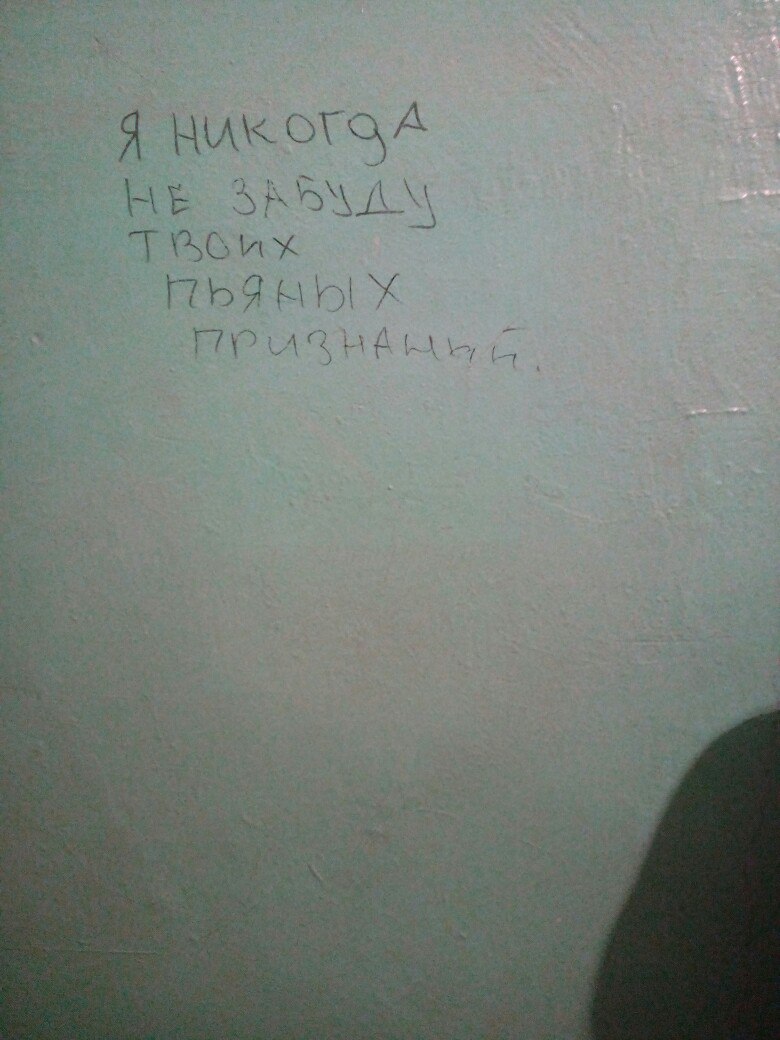 Я НИКОГДА
НЕ ЗАБУДУ
ТВОИХ
ПЬЯНЫХ
ПРИЗНАНЫЙ.